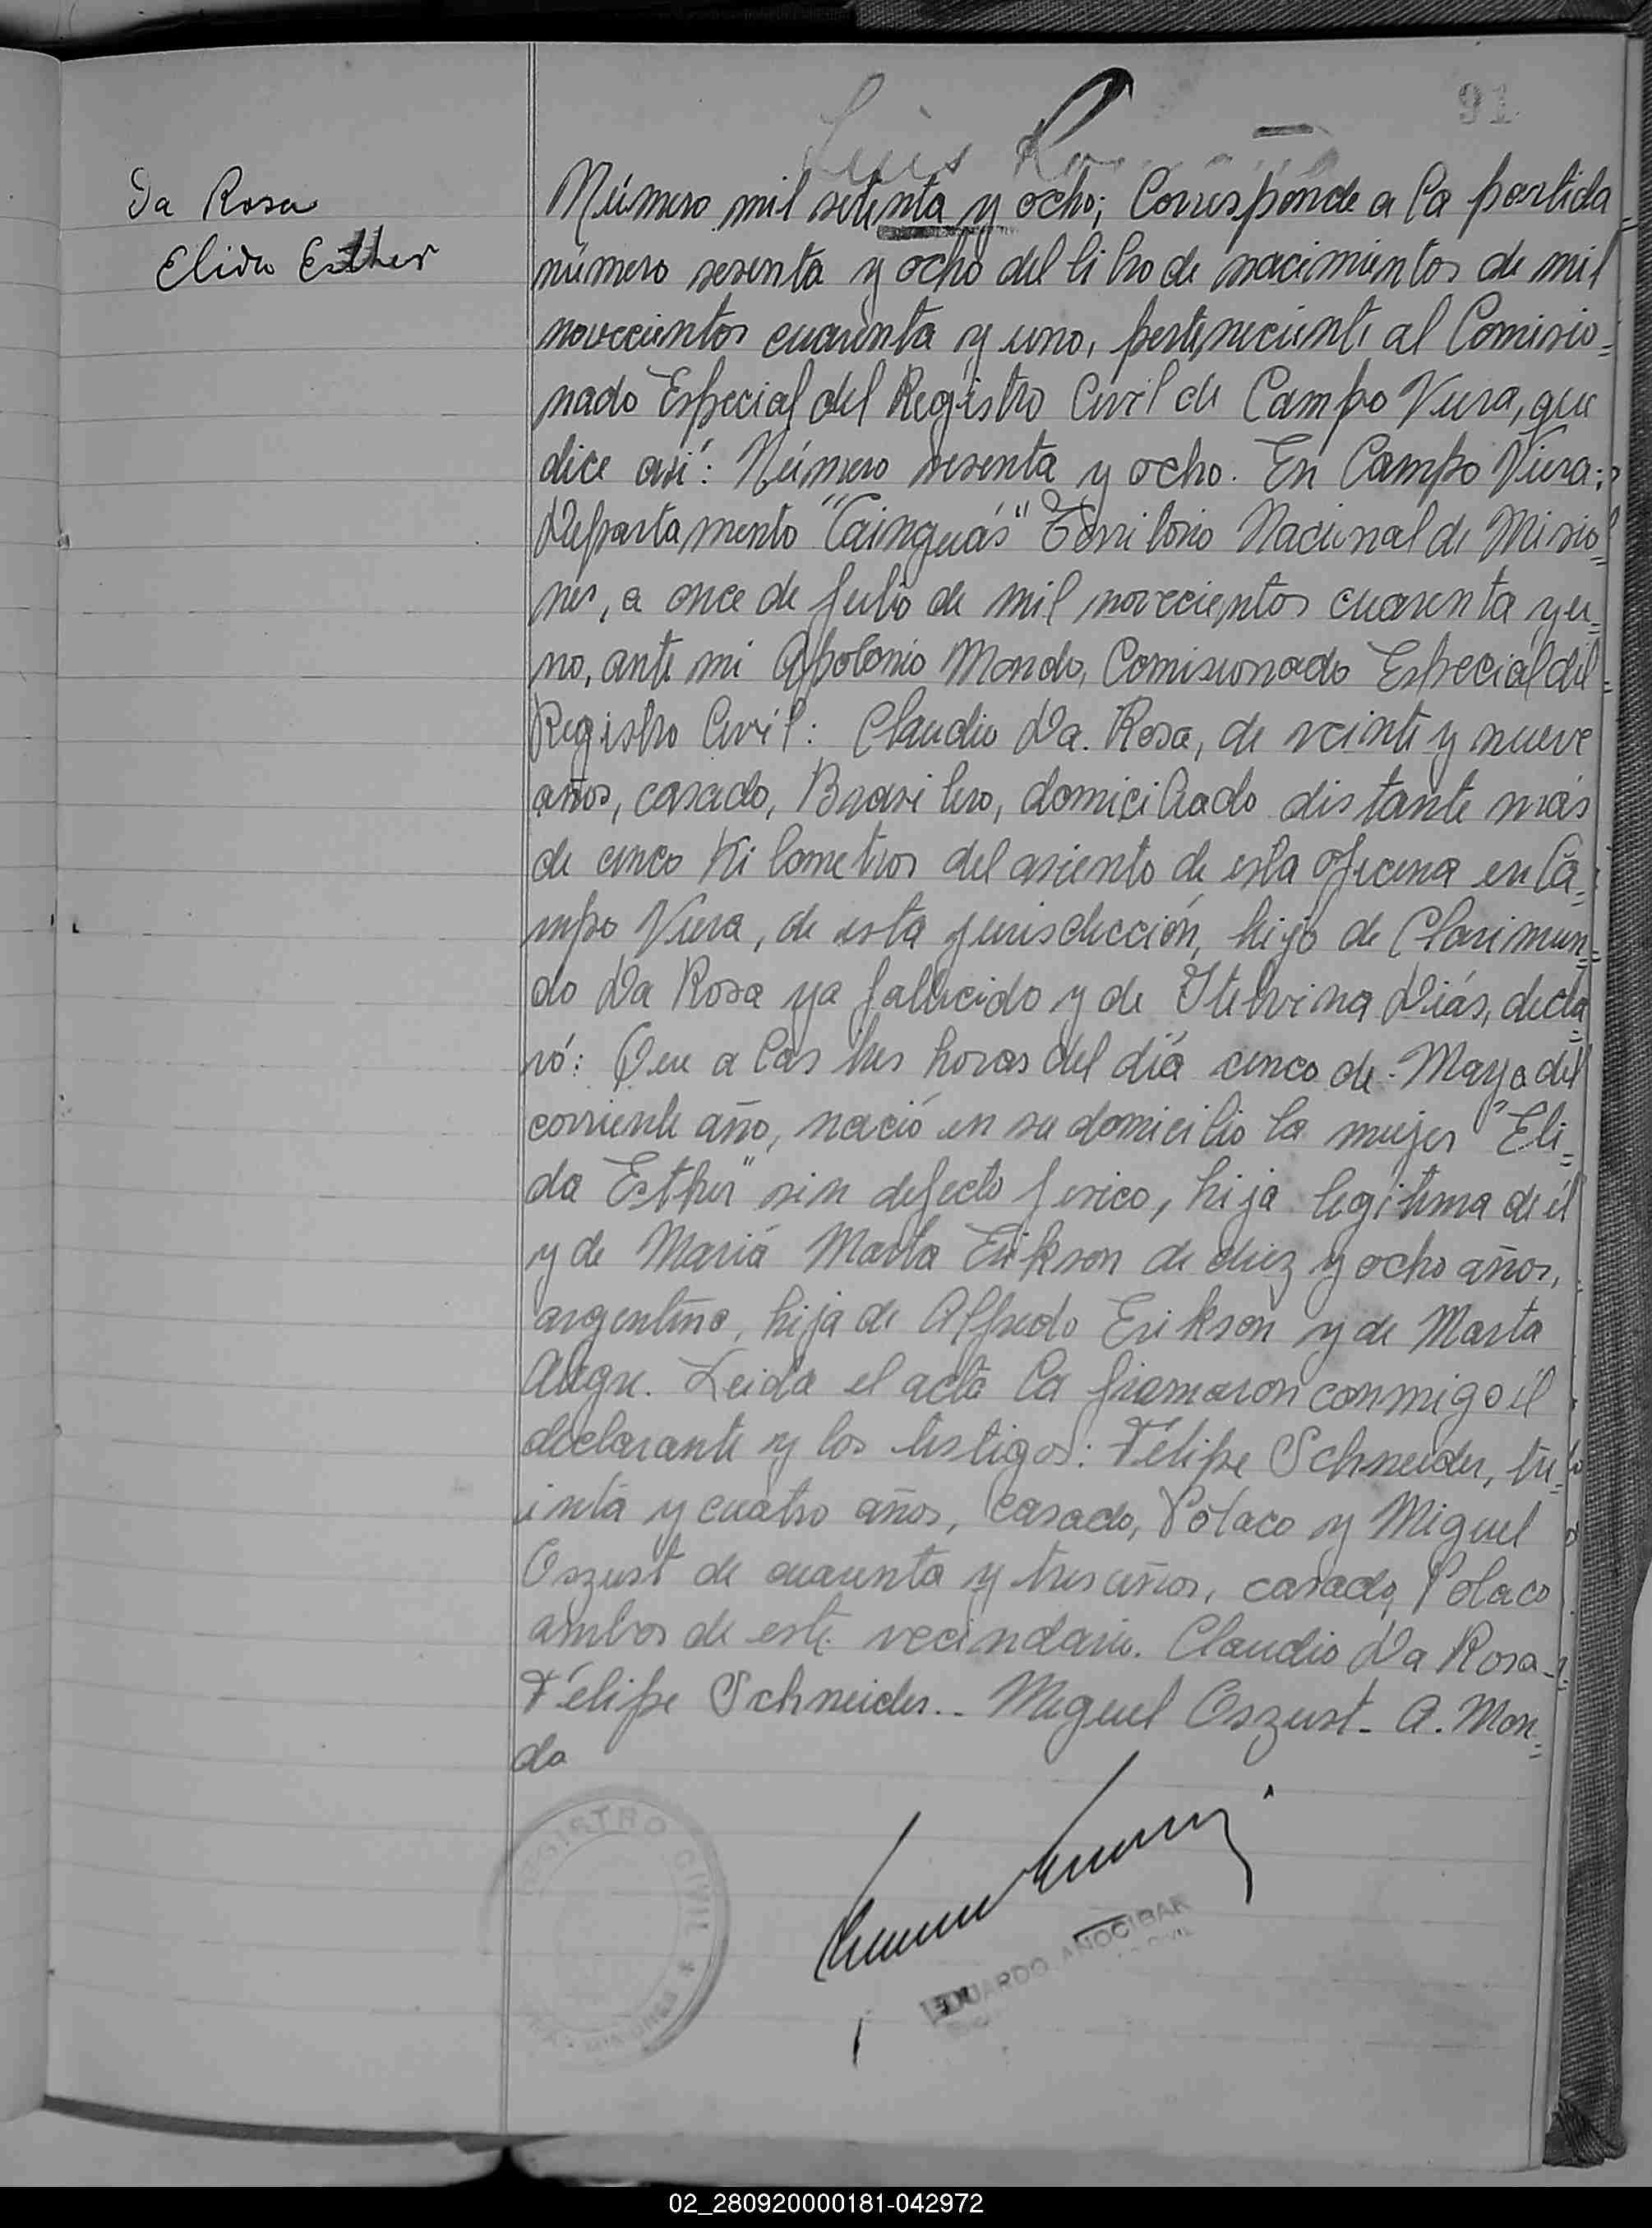 91
Luis
Da Rosa
Elida Esther
Número mil setenta y ocho; Corresponde a la partida
número sesenta y ocho del libro de nacimientos de mil
novecientos cuarenta y uno, perteneciente al Comisio=
nado Especial del Registro Civil de Campo Viera, que
dice así: Número sesenta y ocho. En Campo Viera;
Departamento "Cainguás" Territorio Nacional de Misio=
nes, a once de Julio de mil novecientos cuarenta y u=
no, ante mi Apolonio Mondo, Comisionado Especial del
Registro Civil: Claudio Da. Rosa, de veinte y nueve
años, casado, Brasilero, domiciliado distante más
de cinco Kilometros del asiento de esta oficina en Ca=
mpo Viera, de esta jurisdicción, hijo de Clarimun=
do Da Rosa ya fallecido y de Itelvina Diás, decla
ró: Que a las tres horas del día cinco de Mayo del
corriente año, nació en su domicilio la mujer "Eli=
da Esther" sin defecto fisico, hija legítima de él
y de Mariá Marta Erikson de diez y ocho años,
argentina, hija de Alfredo Erikson y de Marta
Leida el acta la firmaron conmigo él
declarante y los testigos: Félipe Schneider, tre=
inta y cuatro años, casado, Polaco y Miguel
Oszust de cuarenta y tres años, casado, Polaco
ambos de este vecindario. Claudio Da Rosa-
Félipe Schneider.- Miguel Oszust- A. Mon=
do
REGISTRO CIVIL *
EDUARDO ANOCIBAR
02_280920000181-042972